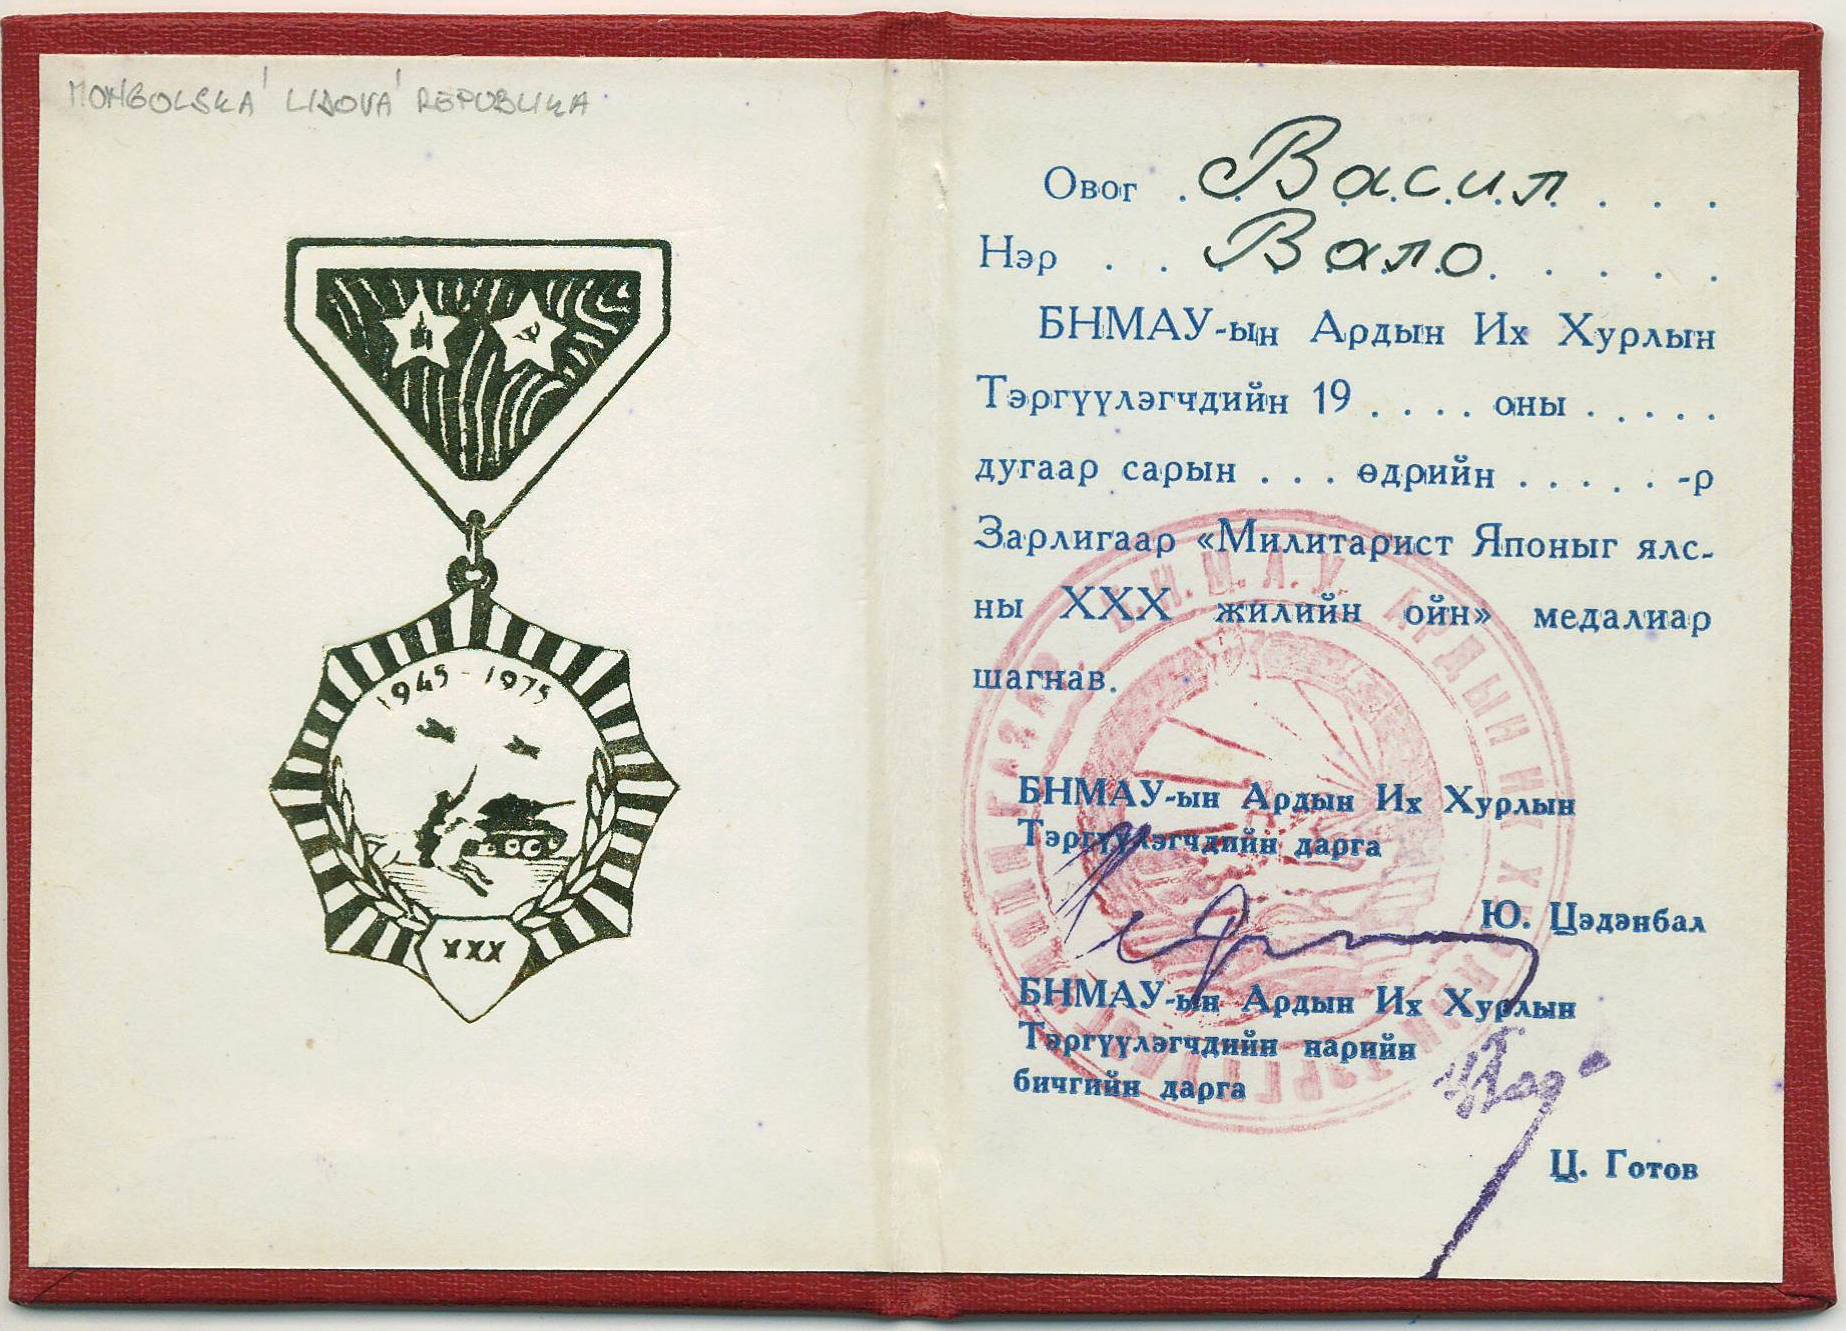 MONGOLSKÁ LIDOVÁ REPUBLIKA
1945-1975
XXX
Овог . Васил . . . .
Нэр . . Вало . . . . .
БНМАУ-ын Ардын Их Хурлын
Тэргүүлэгчдийн 19 . . . . оны . . . . .
дугаар сарын . . . өдрийн . . . . . -р
Зарлигаар «Милитарист Японыг ялс-
ны XXX жилийн ойн» медалиар
шагнав.
БНМАУ-ын Ардын Их Хурлын
Тэргүүлэгчдийн дарга
Ю. Цэдэнбал
БНМАУ-ын Ардын Их Хурлын
Тэргүүлэгчдийн нарийн
бичгийн дарга
Ц. Готов
Б.Н.М.А.У. АРДЫН ИХ ХУРЛЫН